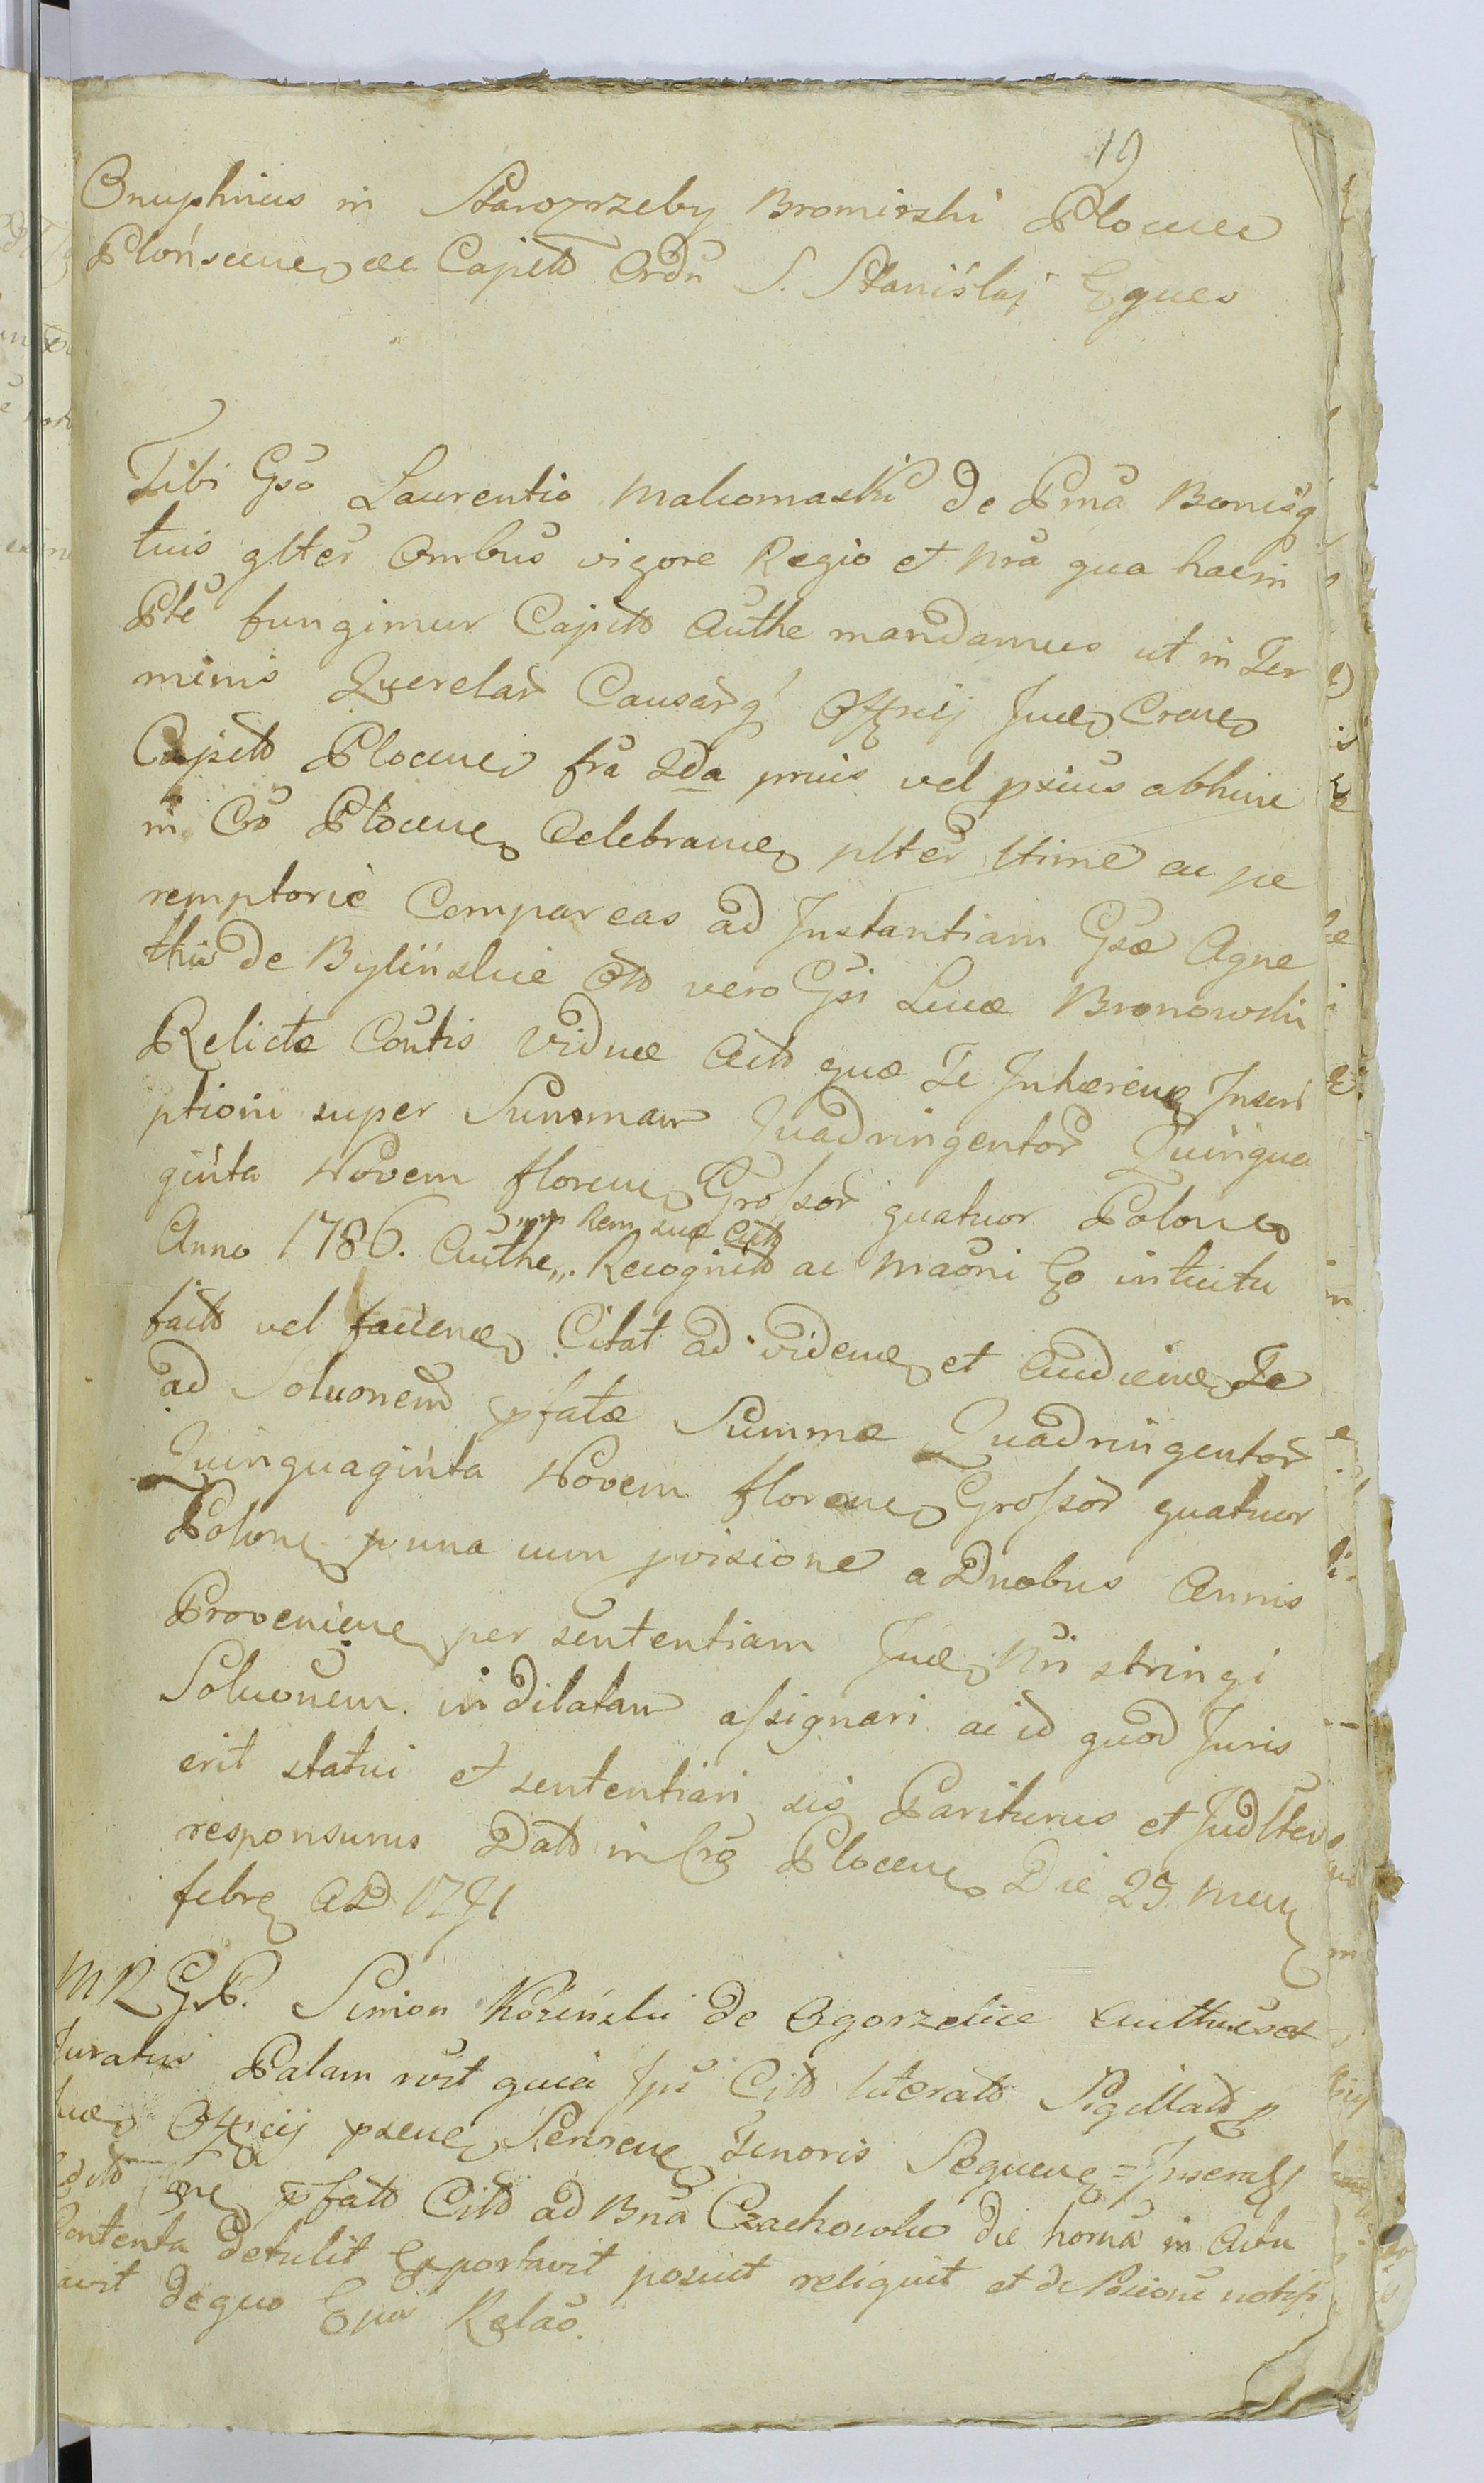 19
Onuphrius in Starozrzeby Bromirski Plocen
Płońscen ac Capit Ordn S. Stanisłaj Eques
Tibi Gso Laurentio Malomaski de Prna Bonisq
tuis glter Ombus vigore Regio et Nra qua hacin
Pte fungimur Capit Authe mandamus ut in Ter
minis Querelar Causarq Officij Juc Crcu
Capit Plocen fra 2da pruis vel pxius abhinc
in Cro Plocen Celebran plter ltime ac pe
remptorie Compareas ad Instantiam Gsæ Agne
this de Bylińskie Ott vero Gsi Lucæ Bronowski
Relictæ Contis Viduæ Act quæ Te Inhæren Inscri
ptioni super Summam Quadringentor Quinqua
ginta Novem floren Grossor quatuor Polon
rem suæ Citt
Anno 1786. Authe Recognit ac Maoni Eo intuitu
fact vel facien Citat ad viden et audien Te
ad Soluonem pfatæ Summæ Quadringentor
Quinquaginta Novem floren Grossor quatuor
Polon una cum pvisione a Duobus Annis
Provenien per sententiam Juc Nri stringi
Soluonem indilatam assignari ac id quod Juris
erit statui et sententiari sis Pariturus et Judlter
responsurus Datt in Cro Plocen Die 25 Men
febr AD 1791
MR GP. Simon Koziński de Ogorzelice
Juratus Palam rvit quia Ipe Citt literatt Sigillatt
Juc Officij psen Serien Tenoris Sequen = Inseratt
pfatt Citt ad Bna Czachowo die horna in Actu
Contenta detulit Exportavit posuit reliquit et de Posione notifi
cavit dequo Epu Relao.